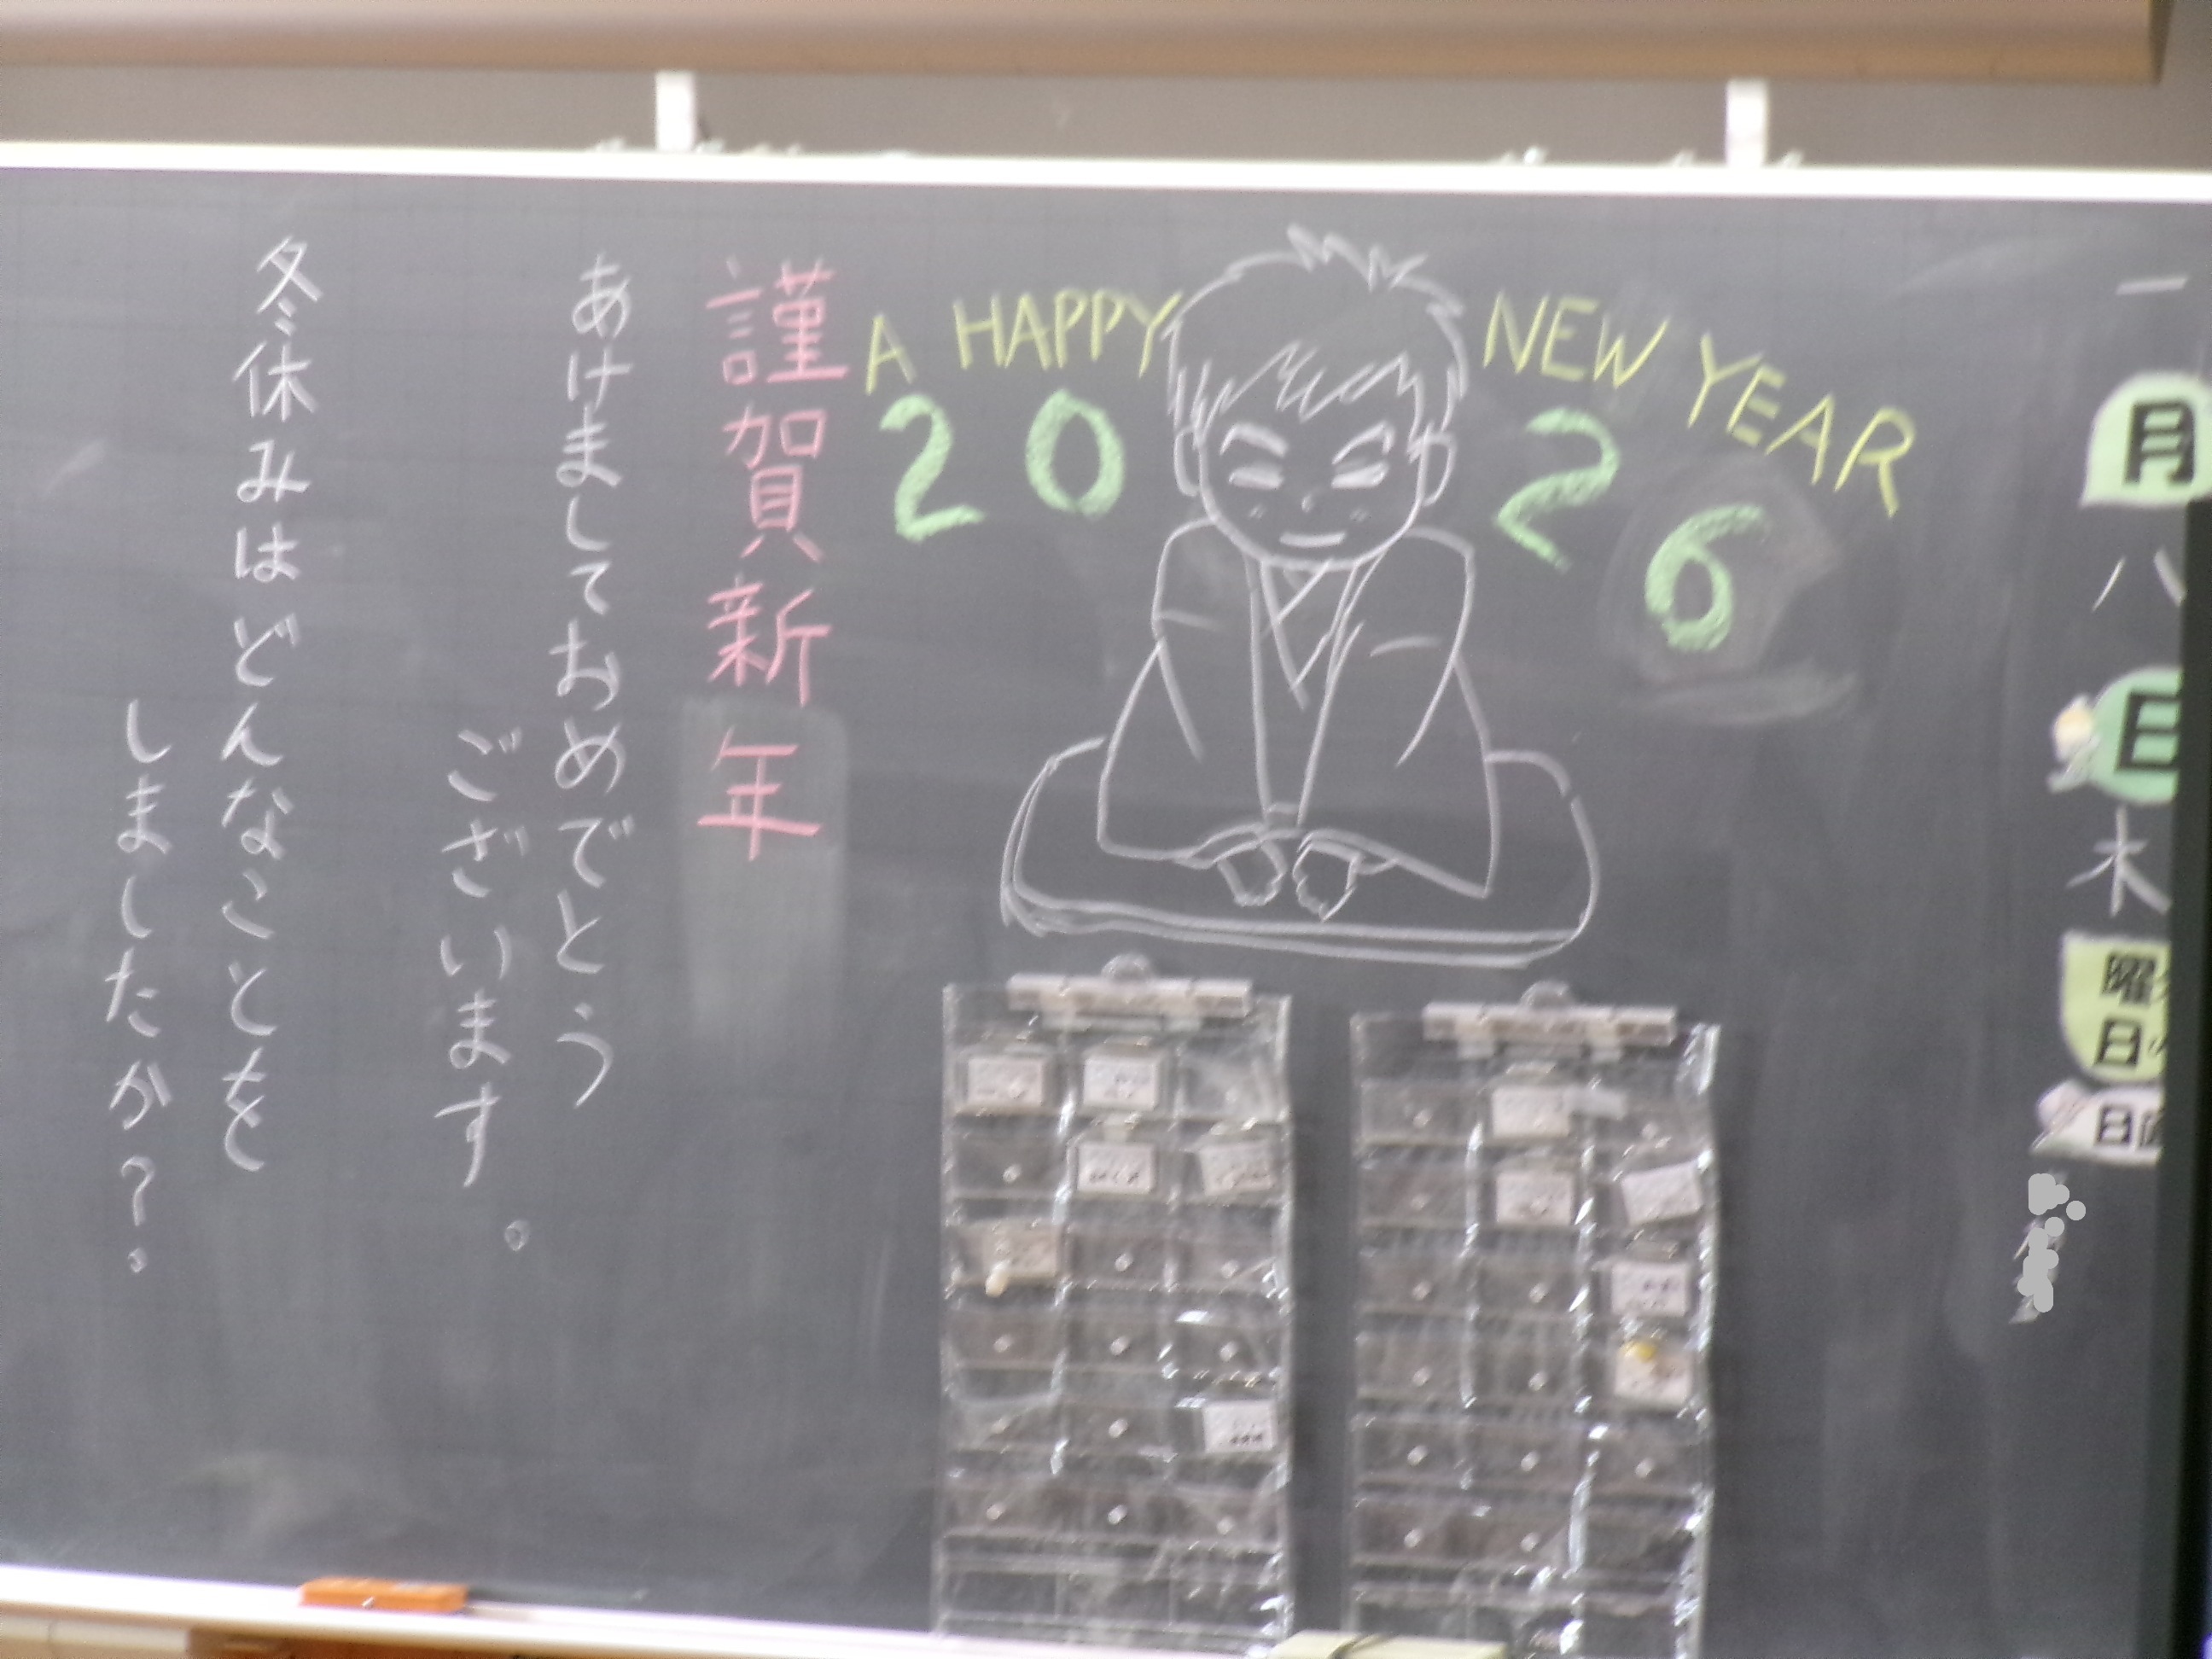 一月八日木曜日
日直
A HAPPY NEW YEAR
2026
謹賀新年
あけましておめでとう
ございます。
冬休みはどんなことを
しましたか？。